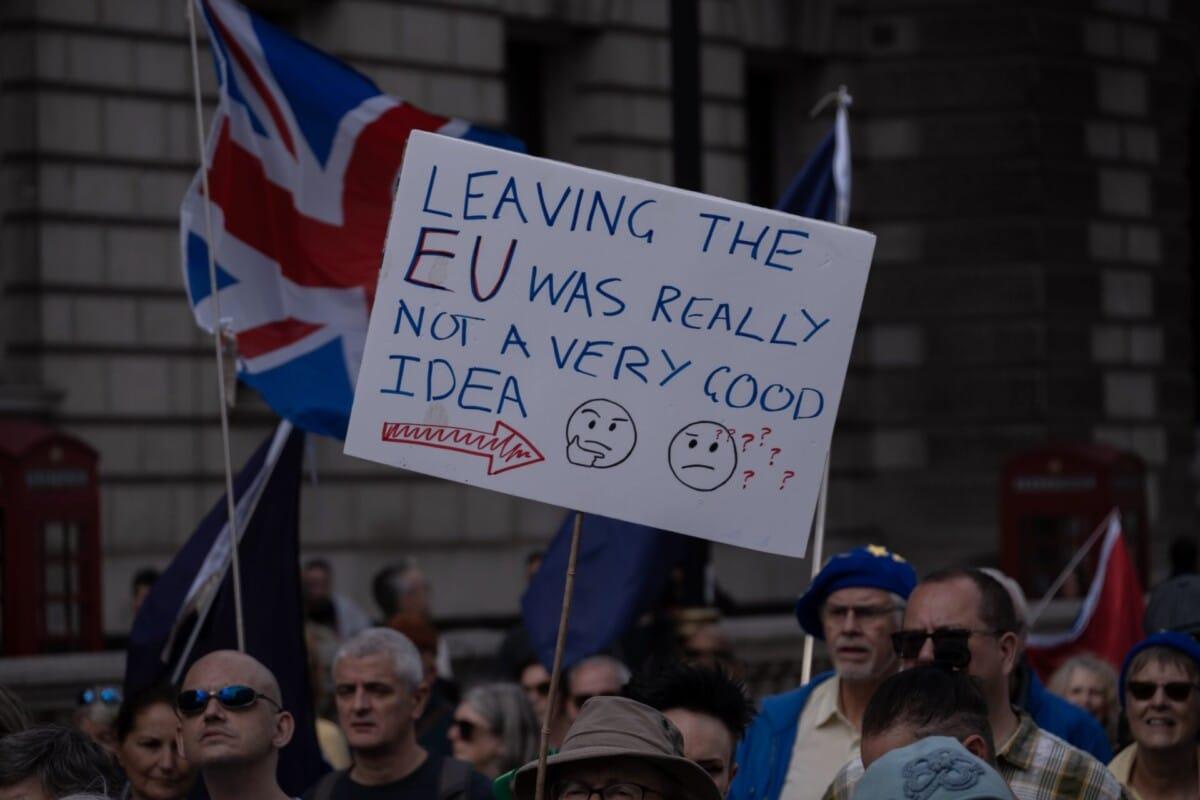 LEAVING THE
EU WAS REALLY
NOT A VERY GOOD
IDEA
??????